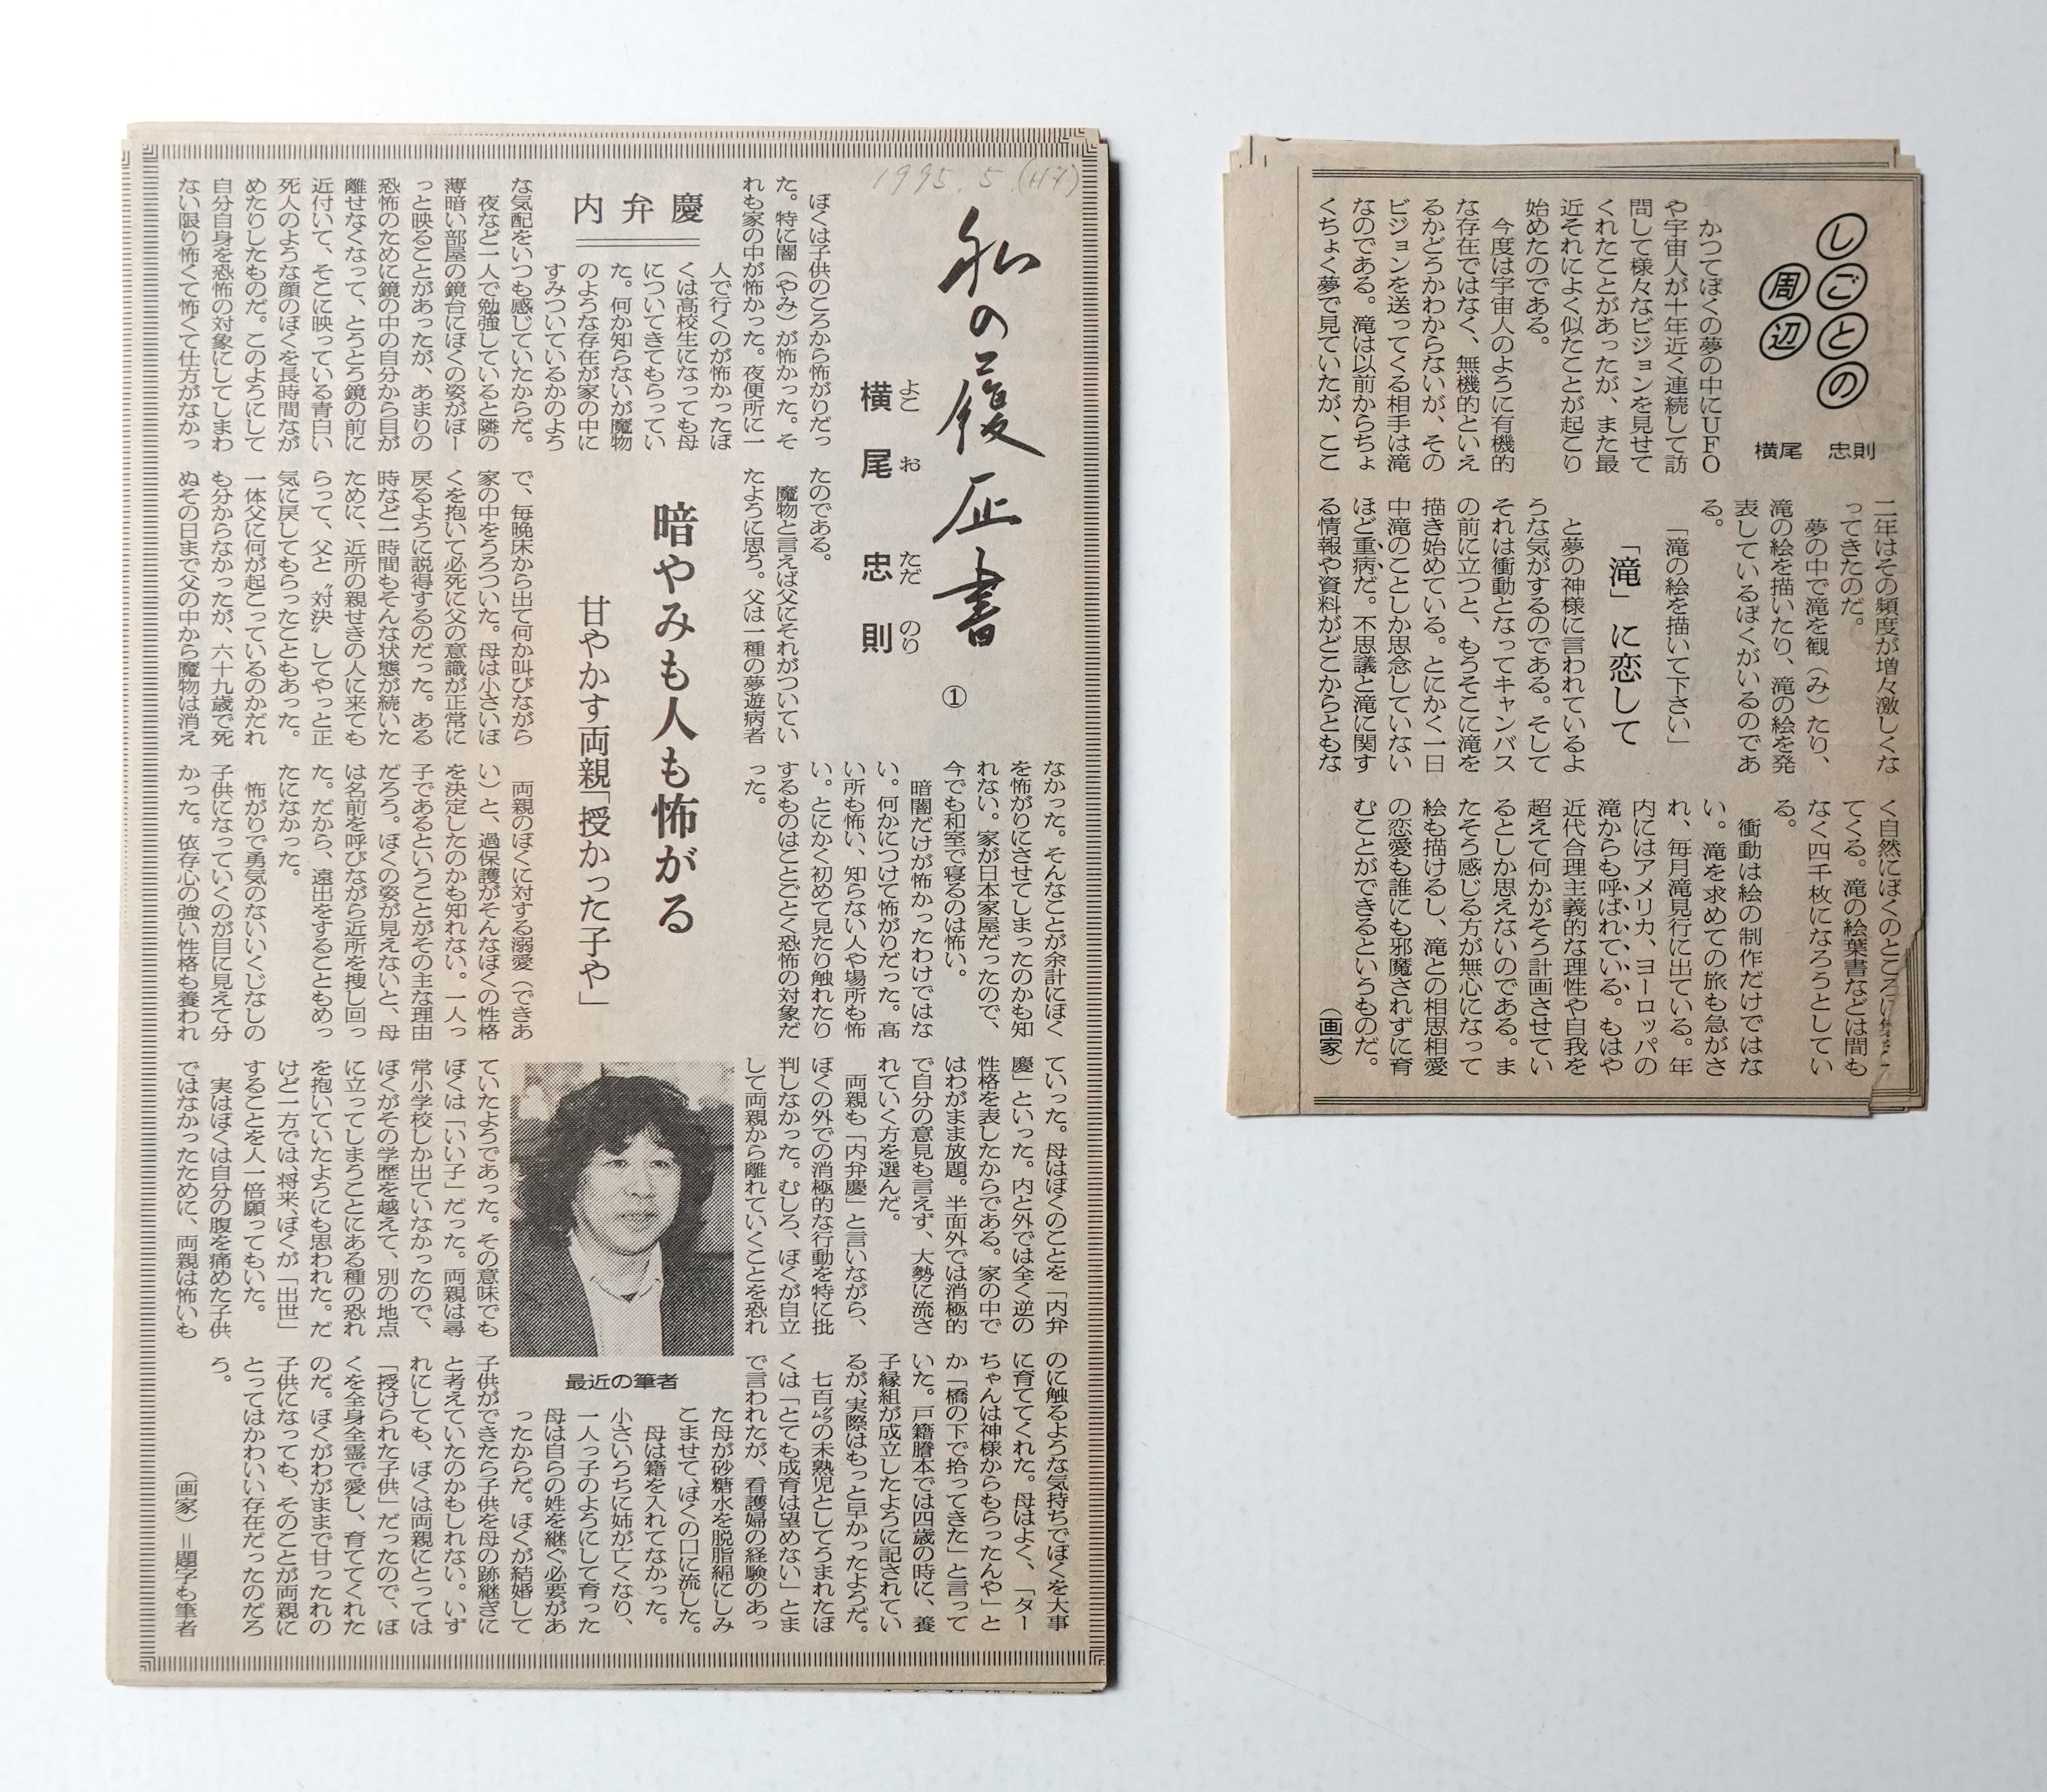 1995.5.(H7)
私の履歴書
①
横尾忠則
よこ お ただ のり
内弁慶
暗やみも人も怖がる
甘やかす両親「授かった子や」
ぼくは子供のころから怖がりだっ
た。特に闇（やみ）が怖かった。そ
れも家の中が怖かった。夜便所に一
人で行くのが怖かったぼ
くは高校生になっても母
についてきてもらってい
た。何か知らないが魔物
のような存在が家の中に
すみついているかのよう
な気配をいつも感じていたからだ。
夜など一人で勉強していると隣の
薄暗い部屋の鏡台にぼくの姿がぼー
っと映ることがあったが、あまりの
恐怖のために鏡の中の自分から目が
離せなくなって、とうとう鏡の前に
近付いて、そこに映っている青白い
死人のような顔のぼくを長時間なが
めたりしたものだ。このようにして
自分自身を恐怖の対象にしてしまわ
ない限り怖くて怖くて仕方がなかっ
たのである。
魔物と言えば父にそれがついてい
たように思う。父は一種の夢遊病者
で、毎晩床から出て何か叫びながら
家の中をうろついた。母は小さいぼ
くを抱いて必死に父の意識が正常に
戻るように説得するのだった。ある
時など一時間もそんな状態が続いた
ために、近所の親せきの人に来ても
らって、父と〝対決〟してやっと正
気に戻してもらったこともあった。
一体父に何が起こっているのかだれ
も分からなかったが、六十九歳で死
ぬその日まで父の中から魔物は消え
なかった。そんなことが余計にぼく
を怖がりにさせてしまったのかも知
れない。家が日本家屋だったので、
今でも和室で寝るのは怖い。
暗闇だけが怖かったわけではな
い。何かにつけて怖がりだった。高
い所も怖い、知らない人や場所も怖
い。とにかく初めて見たり触れたり
するものはことごとく恐怖の対象だ
った。
両親のぼくに対する溺愛（できあ
い）と、過保護がそんなぼくの性格
を決定したのかも知れない。一人っ
子であるということがその主な理由
だろう。ぼくの姿が見えないと、母
は名前を呼びながら近所を捜し回っ
た。だから、遠出をすることもめっ
たになかった。
怖がりで勇気のないいくじなしの
子供になっていくのが目に見えて分
かった。依存心の強い性格も養われ
ていった。母はぼくのことを「内弁
慶」といった。内と外では全く逆の
性格を表したからである。家の中で
はわがまま放題。半面外では消極的
で自分の意見も言えず、大勢に流さ
れていく方を選んだ。
両親も「内弁慶」と言いながら、
ぼくの外での消極的な行動を特に批
判しなかった。むしろ、ぼくが自立
して両親から離れていくことを恐れ
ていたようであった。その意味でも
ぼくは「いい子」だった。両親は尋
常小学校しか出ていなかったので、
ぼくがその学歴を越えて、別の地点
に立ってしまうことにある種の恐れ
を抱いていたようにも思われた。だ
けど一方では、将来、ぼくが「出世」
することを人一倍願ってもいた。
実はぼくは自分の腹を痛めた子供
ではなかったために、両親は怖いも
のに触るような気持ちでぼくを大事
に育ててくれた。母はよく、「ター
ちゃんは神様からもらったんや」と
か「橋の下で拾ってきた」と言って
いた。戸籍謄本では四歳の時に、養
子縁組が成立したように記されてい
るが、実際はもっと早かったようだ。
七百㌘の未熟児としてうまれたぼ
くは「とても成育は望めない」とま
で言われたが、看護婦の経験のあっ
た母が砂糖水を脱脂綿にしみ
こませて、ぼくの口に流した。
母は籍を入れてなかった。
小さいうちに姉が亡くなり、
一人っ子のようにして育った
母は自らの姓を継ぐ必要があ
ったからだ。ぼくが結婚して
子供ができたら子供を母の跡継ぎに
と考えていたのかもしれない。いず
れにしても、ぼくは両親にとっては
「授けられた子供」だったので、ぼ
くを全身全霊で愛し、育ててくれた
のだ。ぼくがわがままで甘ったれの
子供になっても、そのことが両親に
とってはかわいい存在だったのだろ
う。
（画家）＝題字も筆者
最近の筆者
しごとの
周辺
横尾 忠則
「滝」に恋して
かつてぼくの夢の中にUFO
や宇宙人が十年近く連続して訪
問して様々なビジョンを見せて
くれたことがあったが、また最
近それによく似たことが起こり
始めたのである。
今度は宇宙人のように有機的
な存在ではなく、無機的といえ
るかどうかわからないが、その
ビジョンを送ってくる相手は滝
なのである。滝は以前からちょ
くちょく夢で見ていたが、ここ
二年はその頻度が増々激しくな
ってきたのだ。
夢の中で滝を観（み）たり、
滝の絵を描いたり、滝の絵を発
表しているぼくがいるのであ
る。
「滝の絵を描いて下さい」
と夢の神様に言われているよ
うな気がするのである。そして
それは衝動となってキャンバス
の前に立つと、もうそこに滝を
描き始めている。とにかく一日
中滝のことしか思念していない
ほど重病だ。不思議と滝に関す
る情報や資料がどこからともな
く自然にぼくのところに集
てくる。滝の絵葉書などは間も
なく四千枚になろうとしてい
る。
衝動は絵の制作だけではな
い。滝を求めての旅も急がさ
れ、毎月滝見行に出ている。年
内にはアメリカ、ヨーロッパの
滝からも呼ばれている。もはや
近代合理主義的な理性や自我を
超えて何かがそう計画させてい
るとしか思えないのである。ま
たそう感じる方が無心になって
絵も描けるし、滝との相思相愛
の恋愛も誰にも邪魔されずに育
むことができるというものだ。
（画家）